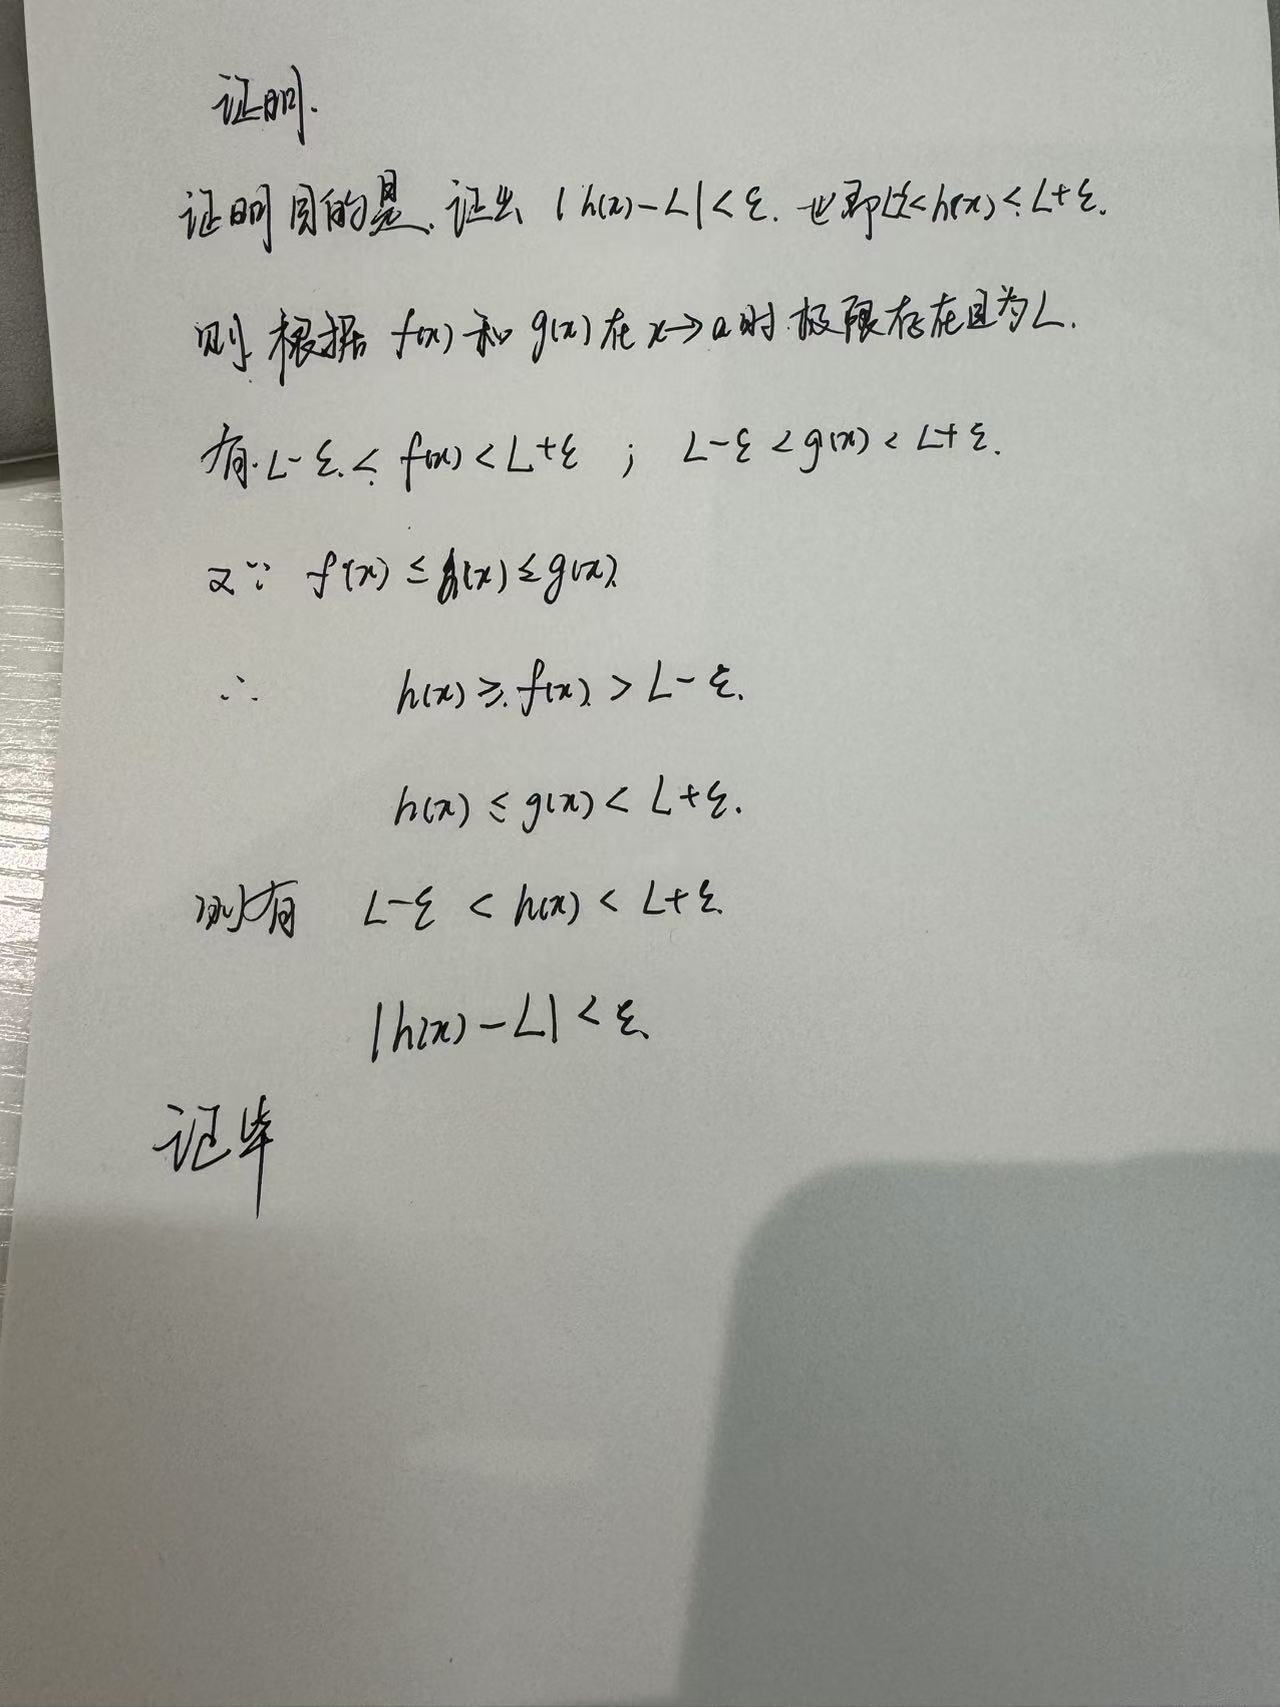 证明.
证明目的是,证出 |h(x)-L|<ε. 也即L-ε<h(x)<L+ε.
则 根据 f(x) 和 g(x) 在 x→a时 极限存在且为L.
有. L-ε.< f(x)<L+ε ; L-ε<g(x)<L+ε.
又∵ f(x)≤h(x)≤g(x)
∴ h(x)≥f(x)>L-ε.
h(x)≤g(x)<L+ε.
则有 L-ε<h(x)<L+ε.
|h(x)-L|<ε.
证毕